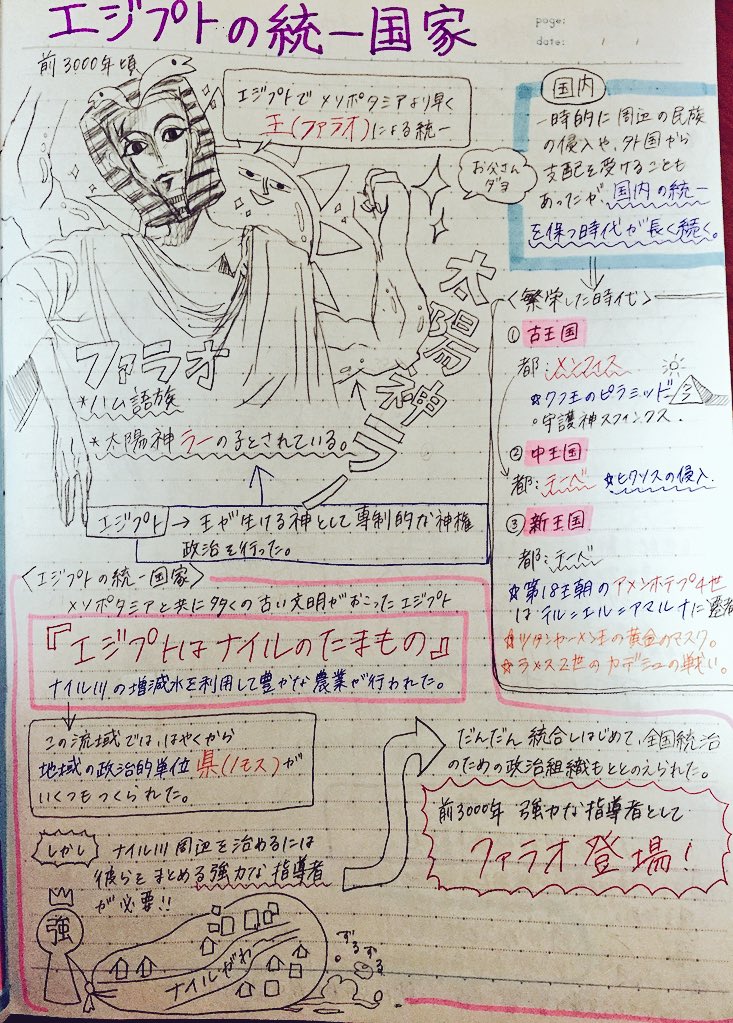 エジプトの統一国家
page:
date: / /
前3000年頃
エジプトで メソポタミアより早く
王(ファラオ)による統一
お父さん
ダヨ
太陽神ラー
ファラオ
*ハム語族
*太陽神ラーの子とされている。
エジプト→王が生ける神として専制的な神権
政治を行った。
国内
一時的に周辺の民族
の侵入や、外国から
支配を受けることも
あったが国内の統一
を保つ時代が長く続く。
<繁栄した時代>
①古王国
都:メンフィス
☆クフ王のピラミッド
○守護神スフィンクス.
②中王国
都:テーベ ☆ヒクソスの侵入.
③新王国
都:テーベ
☆第18王朝のアメンホテプ4世
はテル=エル=アマルナに遷都
☆ツタンカーメン王の黄金のマスク。
☆ラメス2世のカデシュの戦い。
<エジプトの統一国家>
メソポタミアと共に多くの古い文明がおこったエジプト
『エジプトはナイルのたまもの』
ナイル川の増減水を利用して豊かな農業が行われた。
この流域では、はやくから
地域の政治的単位 県(ノモス)が
いくつもつくられた。
しかし ナイル川周辺を治めるには
彼らをまとめる強力な指導者
が必要!!
強
ナイルがわ
ずるずる
だんだん統合しはじめて、全国統治
のための政治組織もととのえられた。
前3000年 強力な指導者として
ファラオ登場!